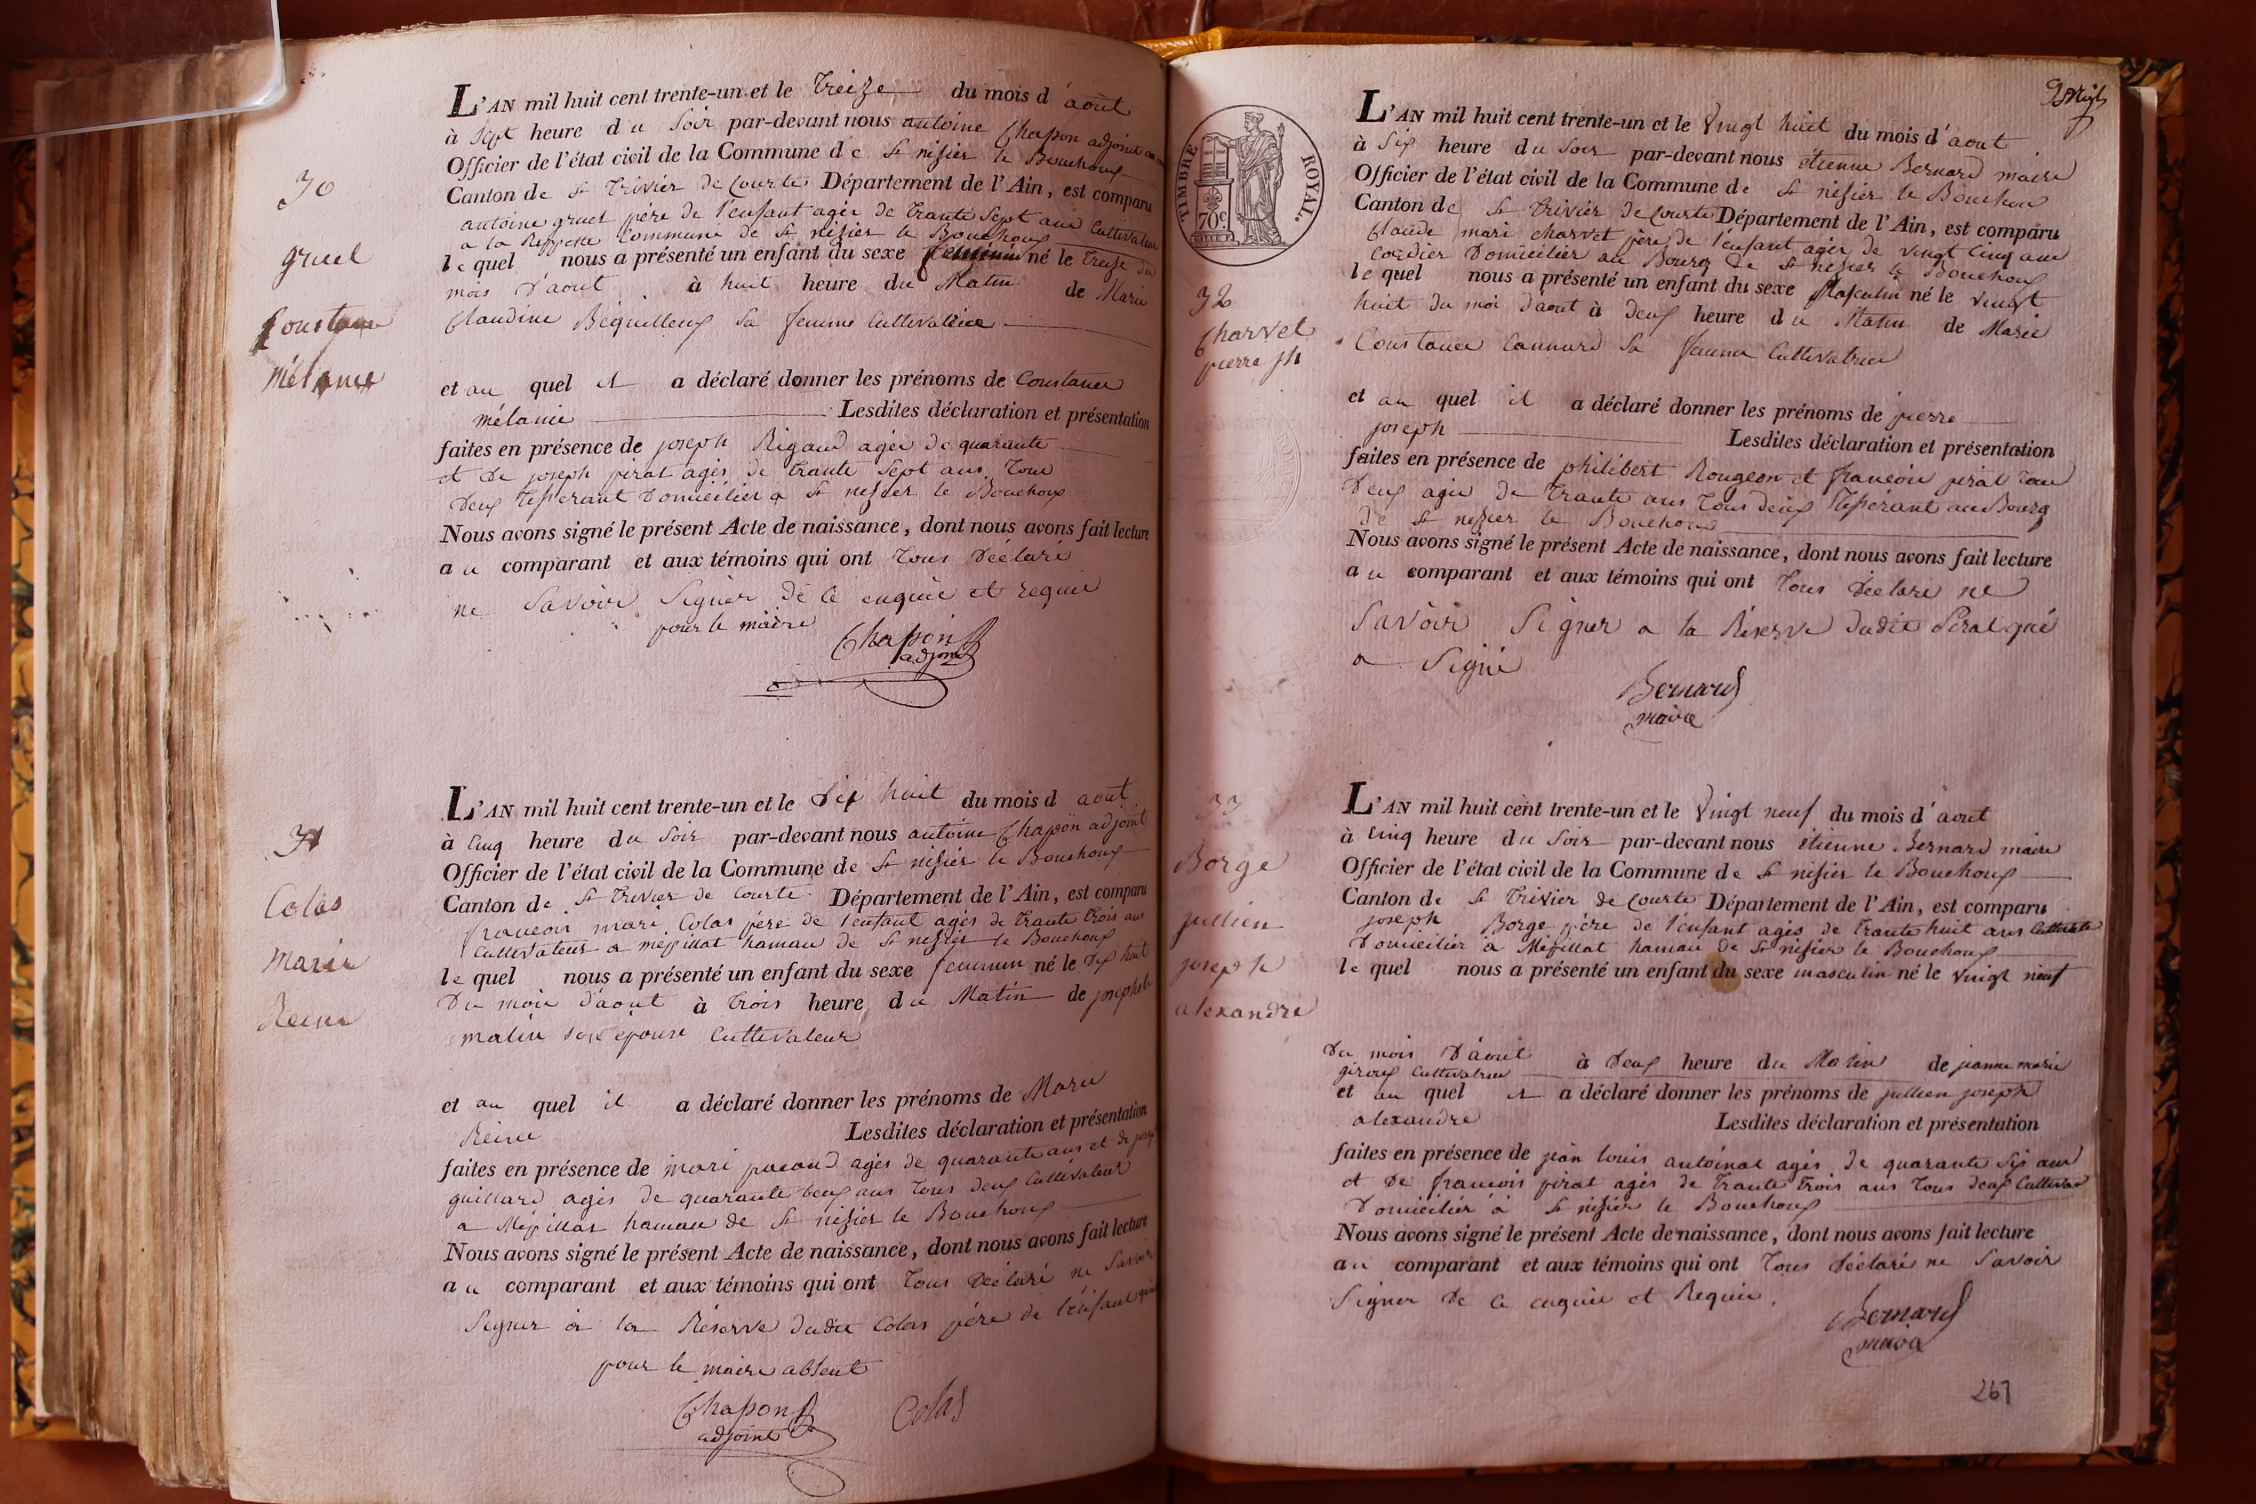 70
gruel
Constance
mélanie
L'AN mil huit cent trente-un et le treize du mois d'août
à sept heure du soir par-devant nous antoine Chapon adjoint
Officier de l'état civil de la Commune de St nisier le Bouchoux
Canton de St trivier de Courte Département de l'Ain, est comparu
antoine gruel père de l'enfant agée de trante sept ans Cultivateur
a la commune de St nisier le Bouchoux
lequel nous a présenté un enfant du sexe feminin né le treize du
mois d'aout à huit heure du Matin de Marie
Claudine Bequilleux sa femme Cultivatrice
et au quel il a déclaré donner les prénoms de Constance
mélanie Lesdites déclaration et présentation
faites en présence de joseph Rigaud agée de quarante
et de joseph pirat agés de trante sept ans tous
deux domicilier a St nisier le Bouchoux
Nous avons signé le présent Acte de naissance, dont nous avons fait lecture
au comparant et aux témoins qui ont tous déclaré
ne savoir signer de ce enquie et requie
pour le maire
Chapon
adjoint
71
Colas
Marie
Reine
L'AN mil huit cent trente-un et le dix huit du mois d aout
à cinq heure du soir par-devant nous antoine Chapon adjoint
Officier de l'état civil de la Commune de St nisier le Bouchoux
Canton de St trivier de Courte Département de l'Ain, est comparu
francois mari Colas père de l'enfant agés de trante trois ans
Cultivateur a mépillat hamau de St nisier le Bouchoux
lequel nous a présenté un enfant du sexe feminin né le dix huit
du mois d'aout à trois heure du Matin de josephete
matin son epouse Cultivateur
et au quel il a déclaré donner les prénoms de Marie
Reine Lesdites déclaration et présentation
faites en présence de mari pacoud agés de quarante ans et de
guillard agés de quarante deux ans tous deux Cultivateur
a Mépillat hamau de St nisier le Bouchoux
Nous avons signé le présent Acte de naissance, dont nous avons fait lecture
au comparant et aux témoins qui ont tous déclaré ne savoir
signer a la Réserve dudit Colas père de l'enfant
pour le maire absent
Chapon
adjoint
Colas
TIMBRE ROYAL.
70c.
72
Charvet
pierre jh
L'AN mil huit cent trente-un et le vingt huit du mois d'aout
à six heure du soir par-devant nous étienne Bernard maire
Officier de l'état civil de la Commune de St nisier le Bouchou
Canton de St trivier de Courte Département de l'Ain, est comparu
Claude mari charvet père de l'enfant agés de vingt cinq ans
Cordier domicilier au Bourg de St nisier le Bouchoux
lequel nous a présenté un enfant du sexe Masculin né le vingt
huit du moi d'aout à deux heure du Matin de Marie
Constance Connard sa femme Cultivatrice
et au quel il a déclaré donner les prénoms de pierre
joseph Lesdites déclaration et présentation
faites en présence de philibert Rougeon et francois pirat tous
deux agée de trante ans tous deux au Bourg
de St nisier le Bouchoux
Nous avons signé le présent Acte de naissance, dont nous avons fait lecture
au comparant et aux témoins qui ont tous déclaré ne
savoir signer a la Réserve dudit pirat qui
a signé
Bernard
maire
73
Borge
jullien
joseph
alexandre
L'AN mil huit cent trente-un et le vingt neuf du mois d'aout
à cinq heure du soir par-devant nous étienne Bernard maire
Officier de l'état civil de la Commune de St nisier le Bouchoux
Canton de St trivier de Courte Département de l'Ain, est comparu
joseph Borge père de l'enfant agés de trante huit ans
domicilier a Mépillat hamau de St nisier le Bouchoux
lequel nous a présenté un enfant du sexe masculin né le vingt neuf
du mois d'aout à deux heure du Matin de jeanne marie
giroux Cultivatrice
et au quel il a déclaré donner les prénoms de jullien joseph
alexandre Lesdites déclaration et présentation
faites en présence de jean louis antoinat agés de quarante six ans
et de francois pirat agés de trante trois ans tous deux
domicilier à St nisier le Bouchoux
Nous avons signé le présent Acte de naissance, dont nous avons fait lecture
au comparant et aux témoins qui ont tous déclaré ne savoir
signer de ce enquie et Requie.
Bernard
maire
267